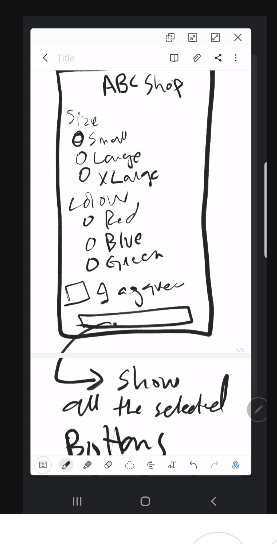 Title
ABC Shop
Size
Small
Large
XLarge
Colour
Red
Blue
Green
I aggree
1/1
Show
all the selected
Buttons